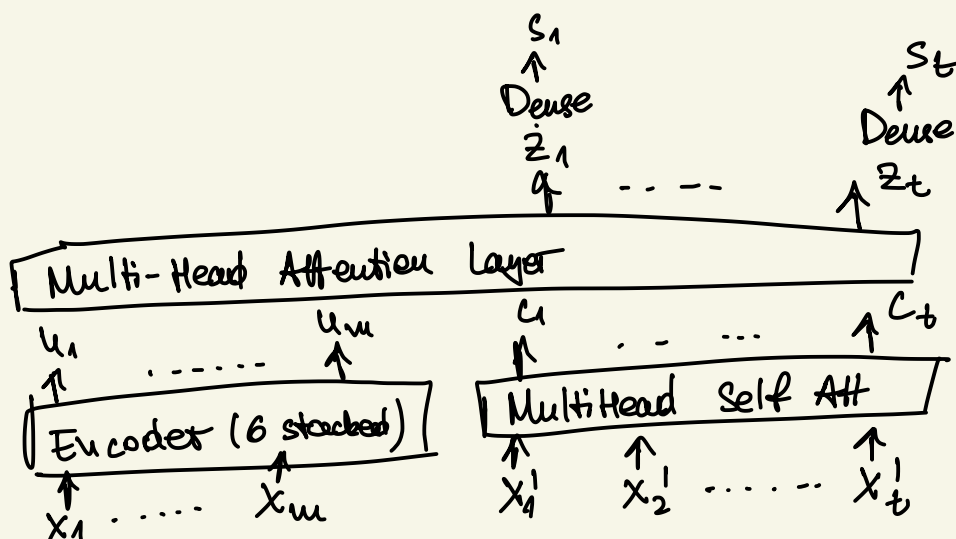 S₁
Sₜ
Dense
Dense
Z₁
..... Zₜ
Multi-Head Attention Layer
u₁ ....... uₘ C₁ ...... Cₜ
Encoder (6 stacked) MultiHead Self Att
X₁ ..... Xₘ X₁' X₂' ...... Xₜ'